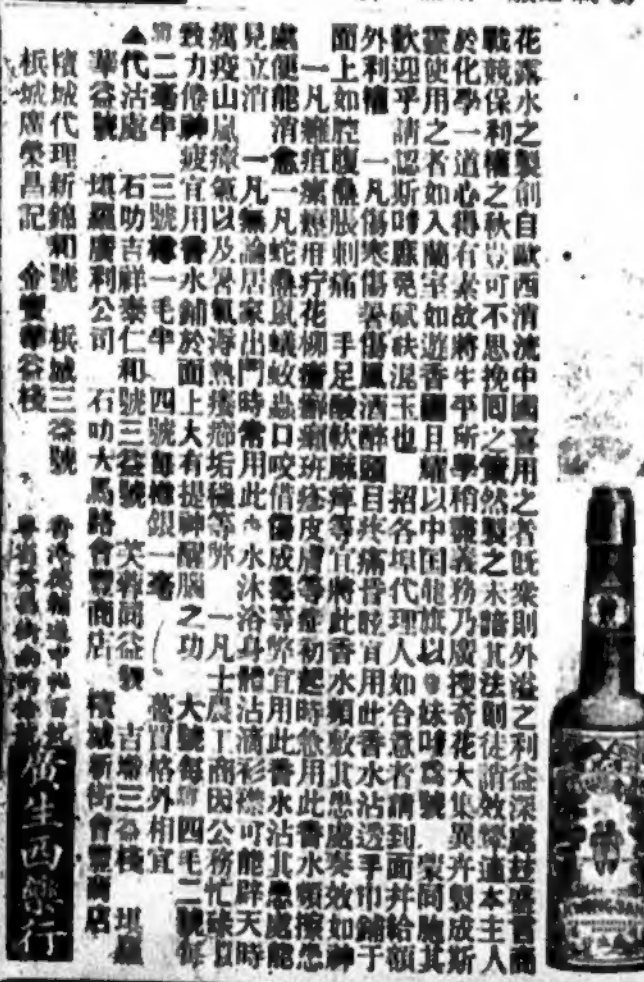 花露水之製創自歐西消流中國喜用之者旣衆則外溢之利益深處玆盛言商
戰競保利權之秋豈可不思挽囘之策然製之未諳其法則徒誚效顰適本主人
於化學一道心得有素故將生平所學稍盡義務乃廣搜奇花大集異卉製成斯
靈使用之者如入蘭室如遊香國且耀以中国龍旗以妹嘜爲號 蒙同胞其
歡迎乎請認斯嘜庶免碔砆混玉也 招各埠代理人如合意者請到面幷給領
外利權 一凡傷寒傷暑傷風酒醉頭目疼痛昏眩宜用此香水沾透手巾鋪于
面上如腔腹叠脹刺痛 手足酸軟麻痺等宜將此香水頻敷其患處奏效如神
一凡癰疽瘰癧疳疔花柳瘡癬癩班疹皮膚等症初起時急用此香水頻擦患
處便能消愈一凡蛇蟲鼠蟻蚊蟲口咬借傷成毒等弊宜用此香水沾其患處能
見立消 一凡無論居家出門時常用此香水沐浴身體沾滴衫襟可能辟天時
癘疫山嵐瘴氣以及暑氣海熱痰癤垢穢等弊 一凡士農工商因公務忙碌以
致力倦神疲宜用香水鋪於面上大有提神醒腦之功 大號每樽四毛二號每
樽二毫半 三號樽一毛半 四號每樽銀一毫 躉買格外相宜
▲代沽處 石叻吉祥泰仁和號三益號 芙蓉同益號 吉埠三益棧 埧羅
華益號 埧羅廣利公司 石叻大馬路會豐商店 檳城新街會豐商店
檳城代理新錦和號 梹城三益號
梹城廣榮昌記 金寶華谷棧
香港德輔道中
廣生西藥行
KWONG SANG